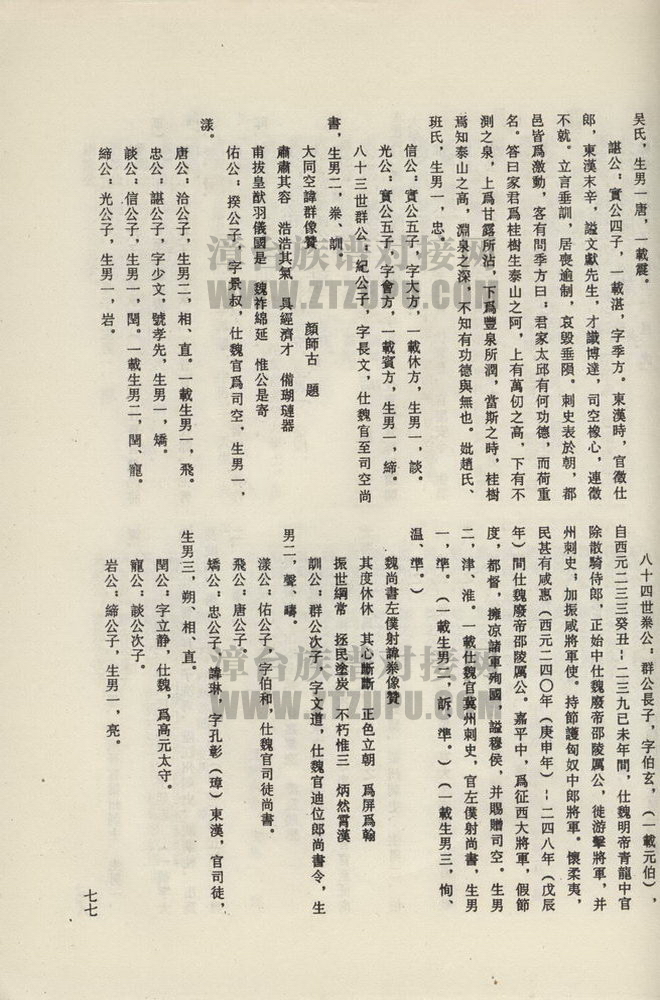 吳氏，生男一唐，一載震。
諶公：寔公四子，一載湛，字季方。東漢時，官徵仕
郎，東漢末辛，謚文獻先生，才識博達，司空橡心，連徵
不就。立言垂訓，居喪逾制，哀毀垂隕。刺史表於朝，都
邑皆爲激動，客有問季方曰：君家太邱有何功德，而荷重
名。答曰家君爲桂樹生泰山之阿，上有萬仞之高，下有不
測之泉，上爲甘露所沾，下爲豐泉所潤，當斯之時，桂樹
焉知泰山之高，淵泉之深，不知有功德與無也。妣趙氏、
班氏，生男一，忠。
信公：寔公五子，字大方，一載休方，生男一，談。
光公：寔公五子，字會方，一載賓方，生男一，締。
八十三世群公：紀公子，字長文，仕魏官至司空尚
書，生男二，桊、訓。
大同空諱群像贊　顏師古　題
肅肅其容　浩浩其氣　具經濟才　備瑚璉器
甫拔皇猷羽儀國是　魏祚綿延　惟公是寄
佑公：揆公子，字景叔，仕魏官爲司空，生男一，
漾。
唐公：洽公子，生男二，相、直。一載生男一，飛。
忠公：諶公子，字少文，號孝先，生男一，矯。
談公：信公子，生男一，閔。一載生男二，閔、寵。
締公：光公子，生男一，岩。
八十四世桊公：群公長子，字伯玄，（一載元伯），
自西元二三三癸丑--二三九己未年間，仕魏明帝青龍中官
除散騎侍郎，正始中仕魏廢帝邵陵厲公，徙游擊將軍，并
州刺史；加振威將軍使。持節護匈奴中郎將軍。懷柔夷，
民甚有咸惠（西元二四〇年（庚申年）--二四八年（戊辰
年）間仕魏廢帝邵陵厲公。嘉平中，爲征西大將軍，假節
度，都督，擁凉諸軍殉國，謚穆侯，并賜贈司空。生男
二，津、淮。一載仕魏官冀州刺史，官左僕射尚書，生男
一，準。（一載生男二，訴、準。）（一載生男三，恂、
温、準。）
魏尚書左僕射諱桊像贊
其度休休　其心斷斷　正色立朝　爲屏爲翰
振世綱常　拯民塗炭　不朽惟三　炳然霄漢
訓公：群公次子，字文道，仕魏官迪位郎尚書令，生
男二，聲、疇。
漾公：佑公子，字伯和，仕魏官司徒尚書。
飛公：唐公子。
矯公：忠公子，諱琳，字孔彰（璋）東漢，官司徒，
生男三，朔、相、直。
閔公：字立靜，仕魏，爲高元太守。
寵公：談公次子。
岩公：締公子，生男一，亮。
七七
漳台族谱对接网
WWW.ZTZUPU.COM
漳台族谱对接网
WWW.ZTZUPU.COM